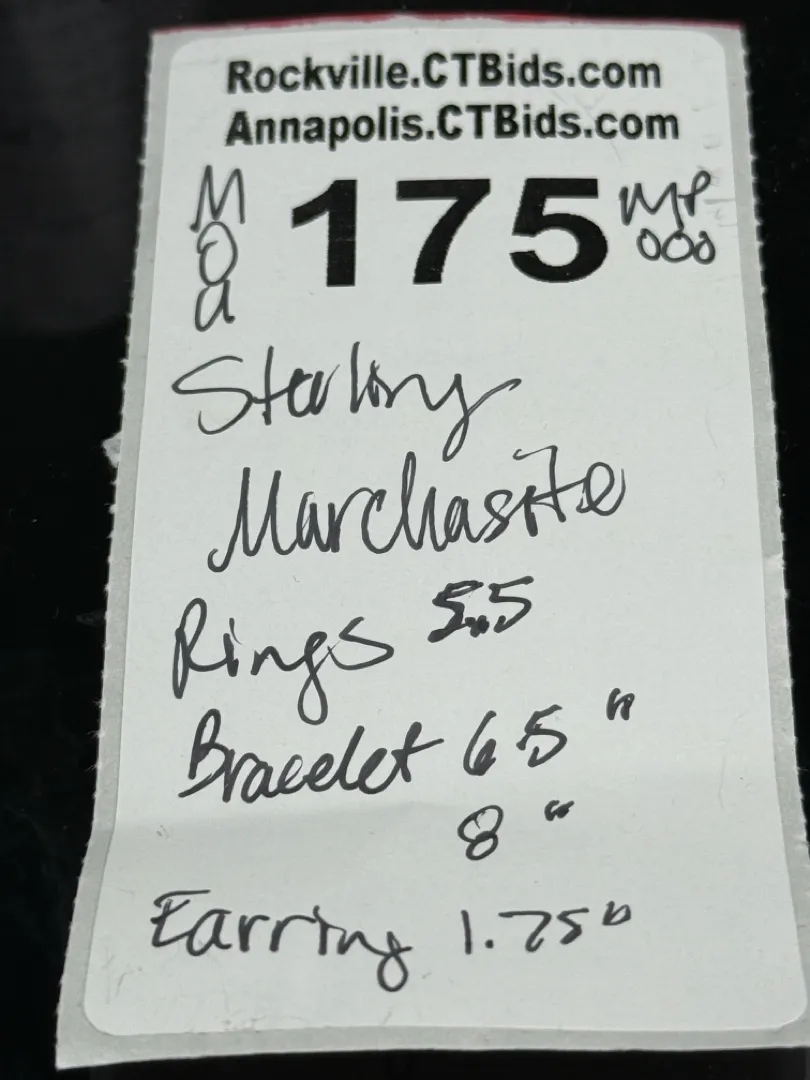 Rockville.CTBids.com
Annapolis.CTBids.com
Moa 175 MP 000
Sterling
Marchasite
Rings 5.5
Bracelet 6.5"
8"
Earring 1.75"